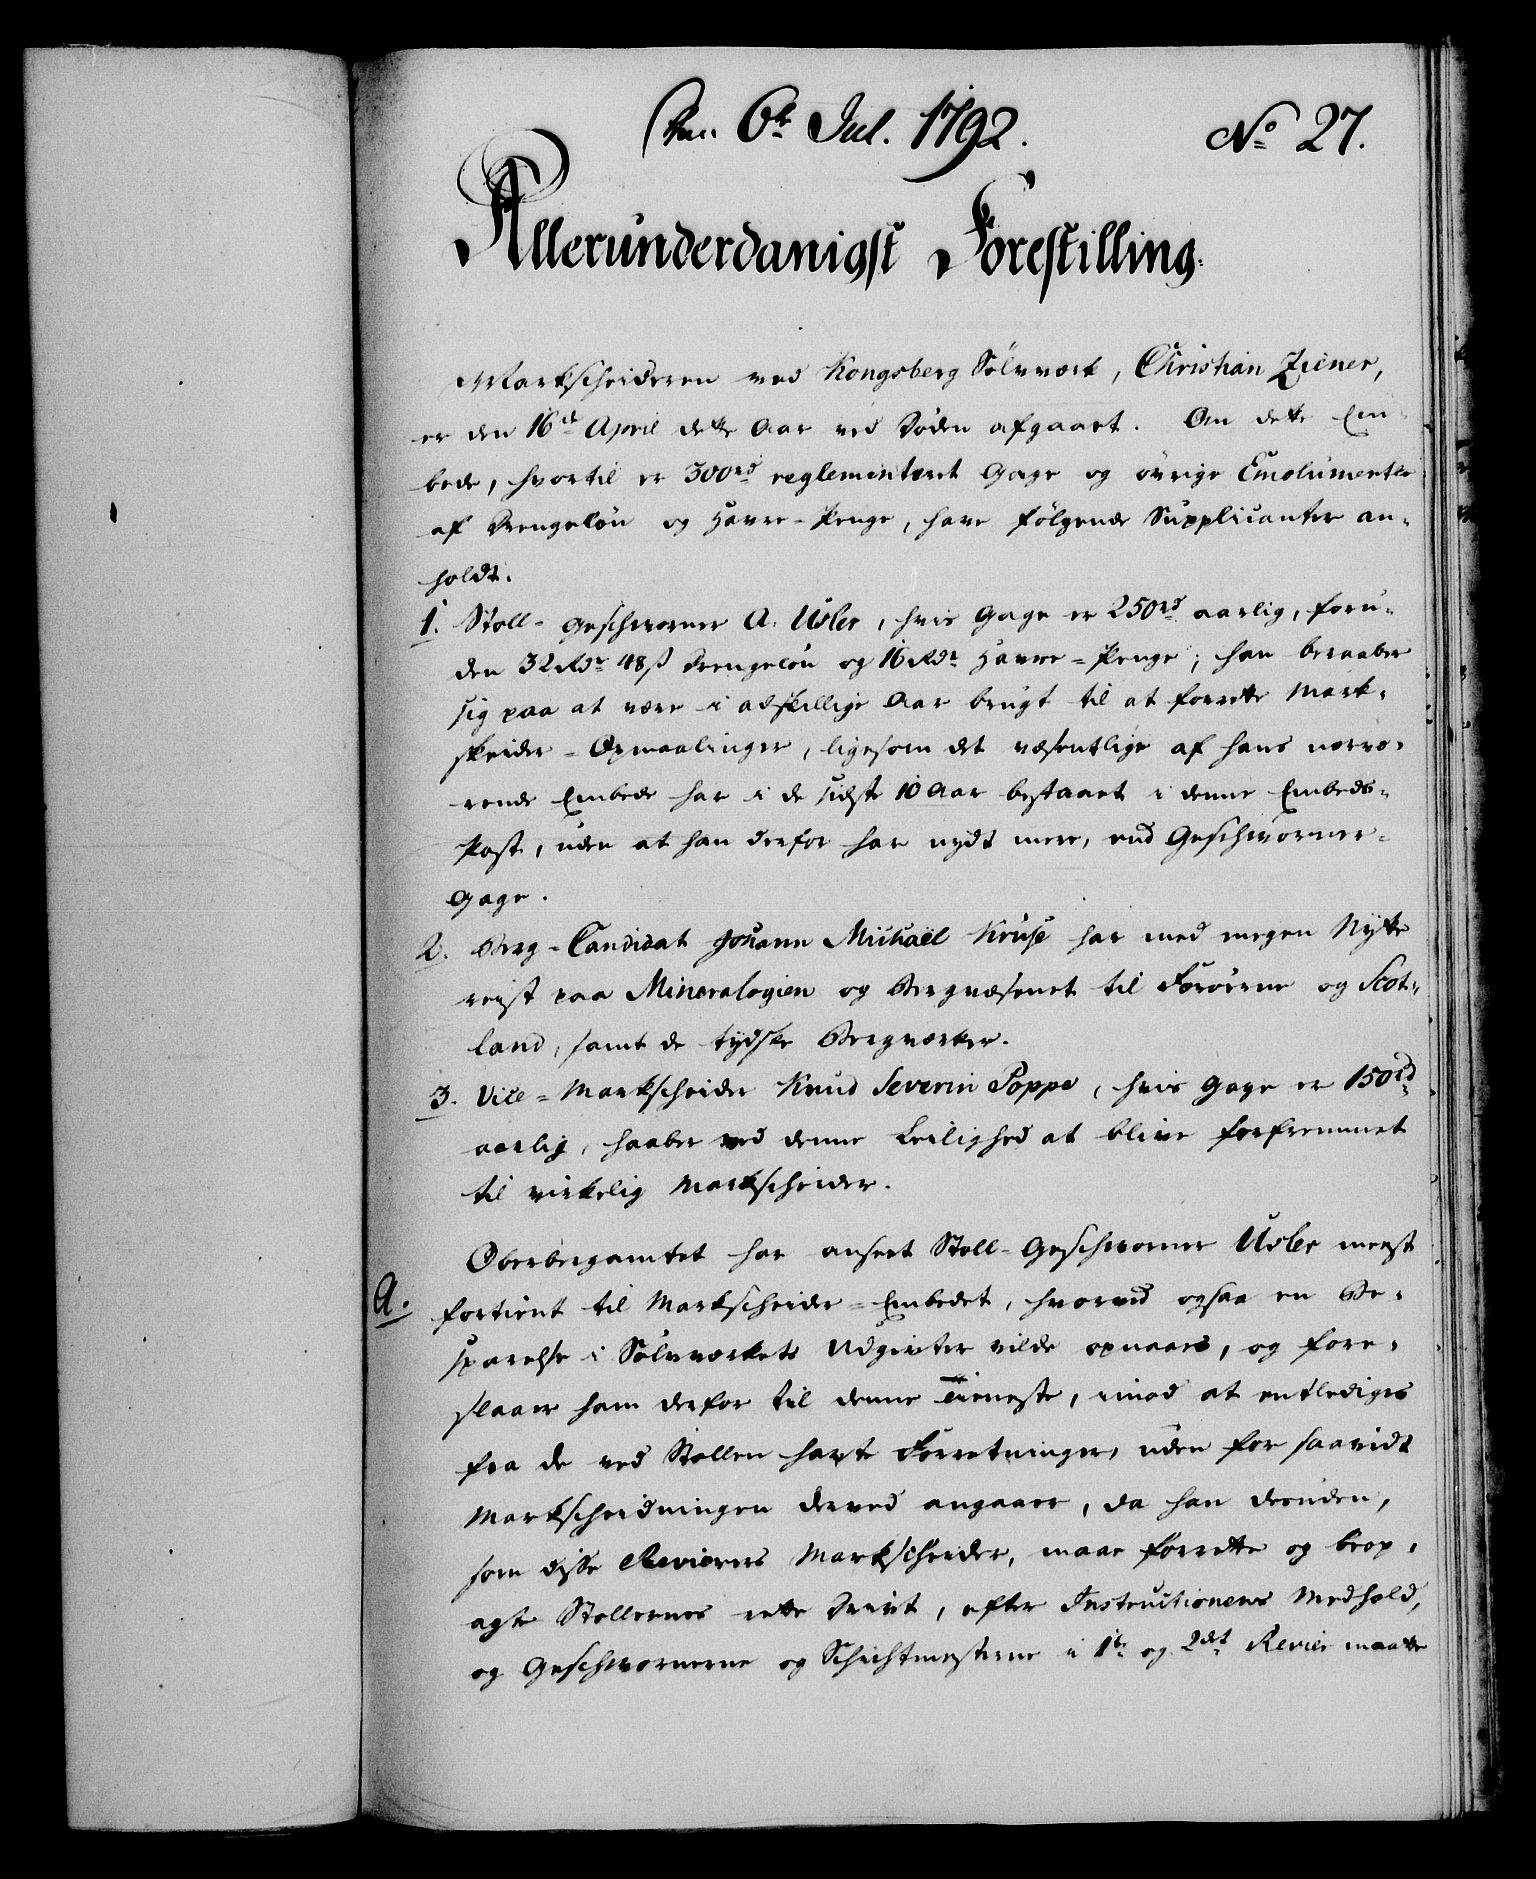 Den 6te Jul. 1792.
No 27.
Allerunderdanigst Forestilling.
Markscheideren ved Kongsberg Sölvværk, Christian Ziener,
er den 16de April dette Aar ved Döden afgaaet. Om dette Em-
bede, hvortil er 300rd reglementeret Gage og övrige Emolumenter
af Drengelön og Havre-Penge, have fölgende Supplicanter an-
holdt.
1. Stoll-Geschworner A. Usler, hvis Gage er 250rd aarlig, foru-
den 32 Rdr 48 ß Drengelön og 16 Rdr Havre-Penge; han beraaber
sig paa at være i adskillige Aar brugt til at forrette Mark-
skeider-Opmaalinger, ligesom det væsentlige af hans nærvæ-
rende Embede har i de sidste 10 Aar bestaaet i denne Embeds-
Post, uden at han derfor har nydt mere, end Geschworner-
Gage.
2. Berg-Candidat Johann Michaël Kruse har med megen Nytte
reist paa Mineralogien og Bergvæsenet til Færöerne og Scot-
land, samt de tydske Bergværker.
3. Vice-Markscheider Knud Severin Poppe, hvis Gage er 150rd
aarlig, haaber ved denne Leilighed at blive forfremmet
til virkelig Markscheider.
Oberbergamtet har anseet Stoll-Geschworner Usler meest
A.
fortient til Markscheider-Embedet, hvorved ogsaa en Be-
sparelse i Sölvværkets Udgivter vilde opnaaes, og fore-
slaaer ham derfor til denne Tieneste, imod at entlediges
fra de ved Stollen havte Forretninger, uden for saavidt
Markscheidningen derved angaaer, da han desuden,
som disse Revierers Markscheider, maae forrette og beop-
agte Stollernes rette Drivt, efter Instructionens Medhold,
og Geschwornerne og Schichtmesterne i 1te og 2det Revier maatte